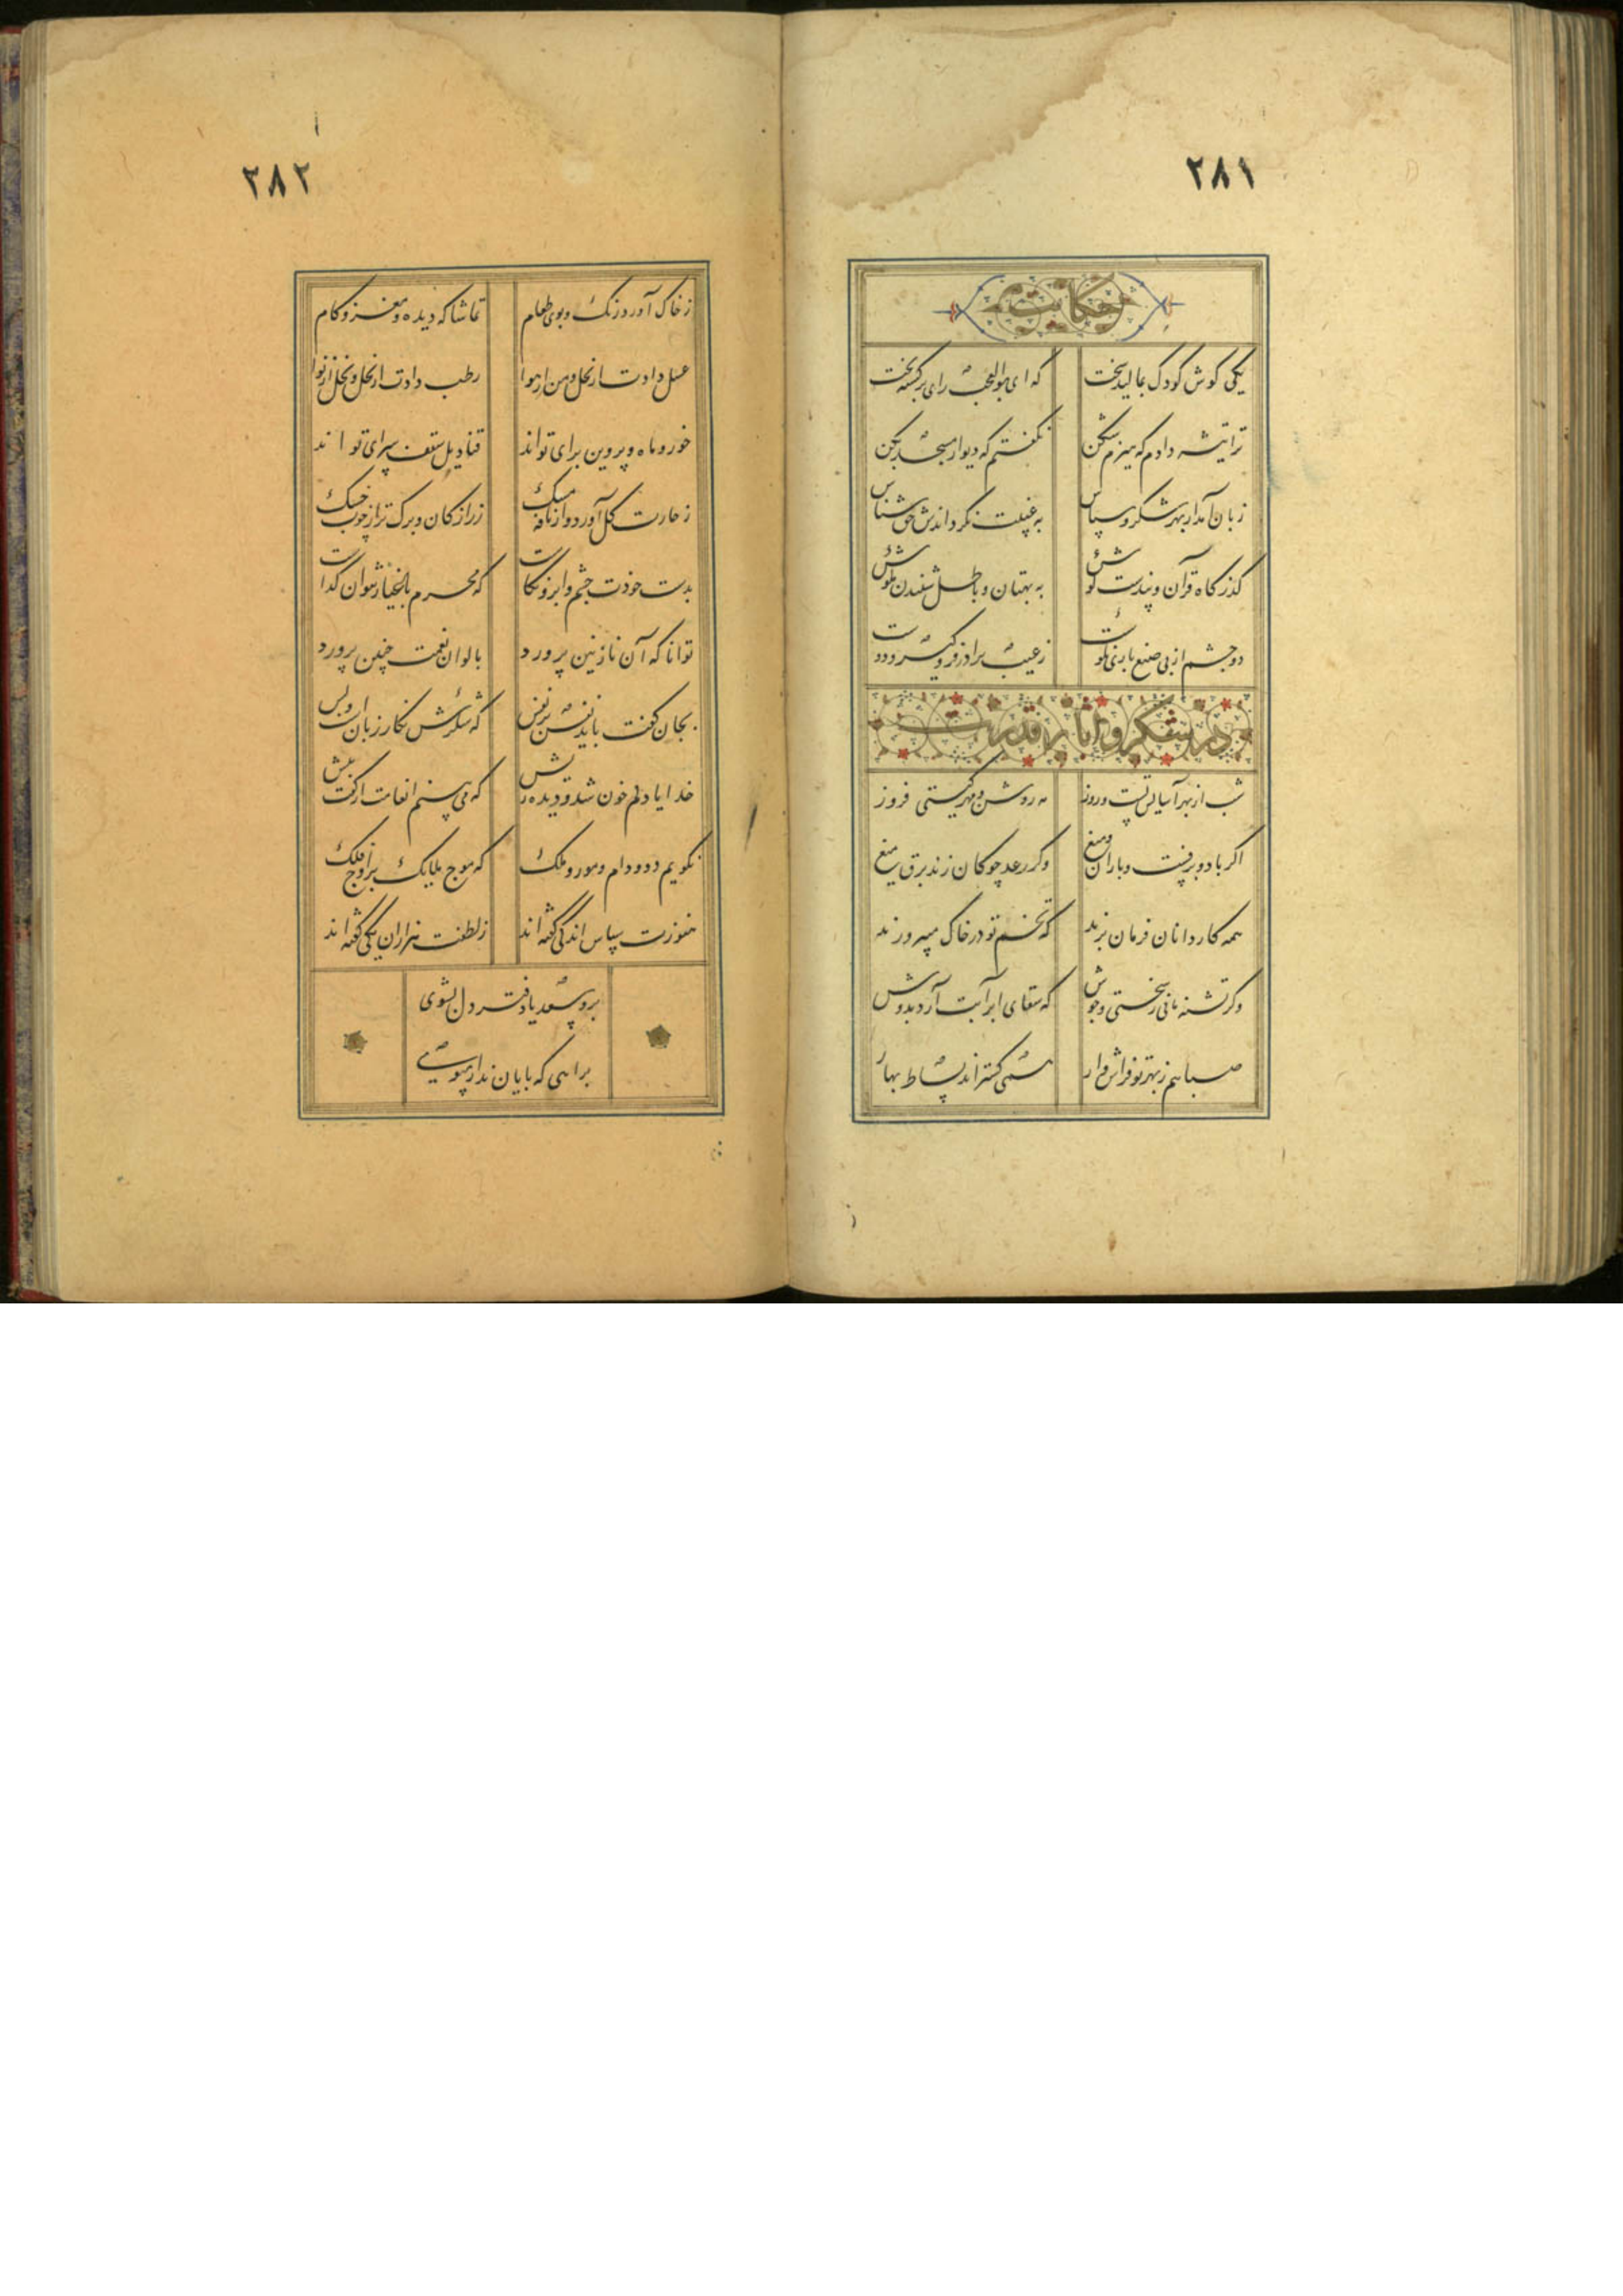 ۲۸۱
حکایت
یکی گوش کودک بمالید سخت که ای بوالعجب رای برگشته بخت
ترا تیشه دادم که هیزم شکن نگفتم که دیوار مسجد بکن
زبان آمد از بهر شکر و سپاس به غیبت نگرداندش حق شناس
گذرگاه قرآن و پندست گوش به بهتان و باطل شنیدن مکوش
دو چشم از پی صنع باری نکوست ز عیب برادر فرو گیر و دوست
در شکر و آثار قدرت
شب از بهر آسایش تست و روز مه روشن و مهر گیتی فروز
اگر باد و برفست و باران و میغ وگر رعد چوگان زند برق تیغ
همه کارداران فرمان برند که تخم تو در خاک میپرورند
وگر تشنه مانی ز سختی مجوش که سقای ابر آبت آرد بدوش
صبا هم ز بهر تو فراش وار همی گستراند بساط بهار
۲۸۲
ز خاک آورد رنگ و بوی طعام تماشاگه دیده و مغز و کام
عسل دادت از نحل و من از هوا رطب دادت از نخل و نخل از نوا
خور و ماه و پروین برای تو اند قنادیل سقف سرای تو اند
ز خارت گل آورد و از نافه مشک زر از کان و برگ تر از چوب خشک
بدست خودت چشم و ابرو نگاشت که محرم باغیار نتوان گذاشت
توانا که آن نازنین پرورد بالوان نعمت چنین پرورد
بجان گفت باید نفس بر نفس که شکرش نه کار زبان است و بس
خدایا دلم خون شد و دیده ریش که می بینم انعامت از گفت بیش
نگویم دد و دام و مور و ملک که موج ملایک بر اوج فلک
هنوزت سپاس اندکی گفته اند ز لطفت هزاران یکی گفته اند
برو سعدیا دفتر دل بشوی
براهی که پایان ندارد مپوی